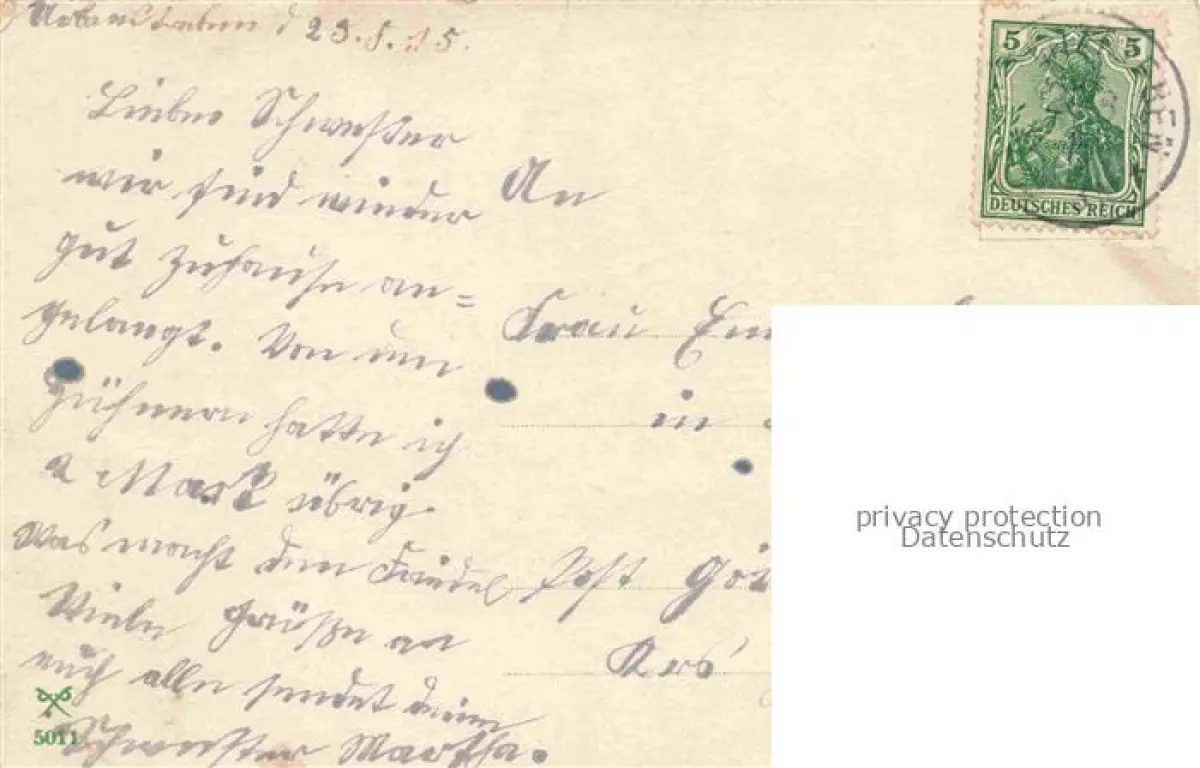 d 23. 8. 15.
Liebe Schwester
wir sind wieder
gut zuhause an=
gelangt. Von
hatte ich
2 Mark übrig.
Was macht den Friedel
Viele Grüße an
euch alle sendet deine
Schwester Martha.
An
Frau
in
Post
Krs
5 5
DEUTSCHES REICH
5011
privacy protection
Datenschutz